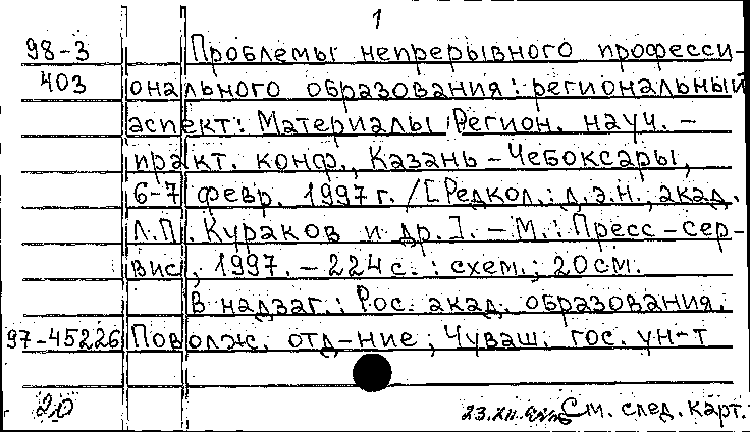 1
98-3 Проблемы непрерывного професси-
403 онального образования: региональный
аспект: Материалы Регион. науч. -
практ. конф., Казань - Чебоксары,
6-7 февр. 1997 г. / [Редкол.: д.э.н., акад.
Л.П. Кураков и др.]. - М.: Пресс-сер-
вис, 1997. - 224 с. : схем.; 20 см.
В надзаг.: Рос. акад. образования.
97-45226 Поволж. отд-ние; Чуваш. гос. ун-т
20 См. след. карт.